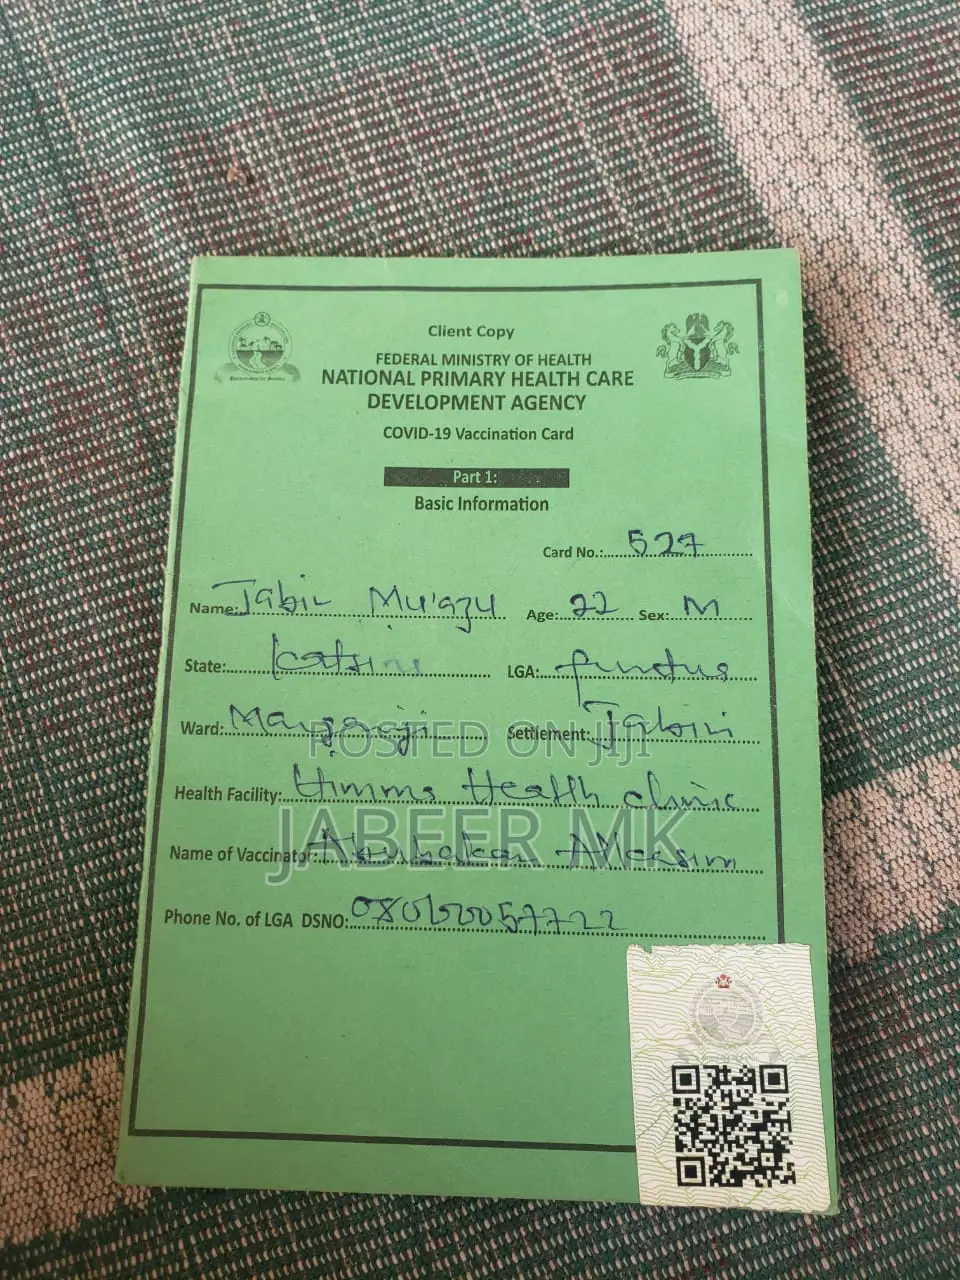 Client Copy
FEDERAL MINISTRY OF HEALTH
NATIONAL PRIMARY HEALTH CARE
DEVELOPMENT AGENCY
COVID-19 Vaccination Card
Part 1:
Basic Information
Card No.: 527
Name: Jabir Mu'azu Age: 22 Sex: M
State: Katsina LGA: funtua
Ward: Settlement: Jabiri
POSTED ON JIJI
Health Facility: Himma Health clinic
JABEER MK
Name of Vaccinator: Abubakar
Phone No. of LGA DSNO: